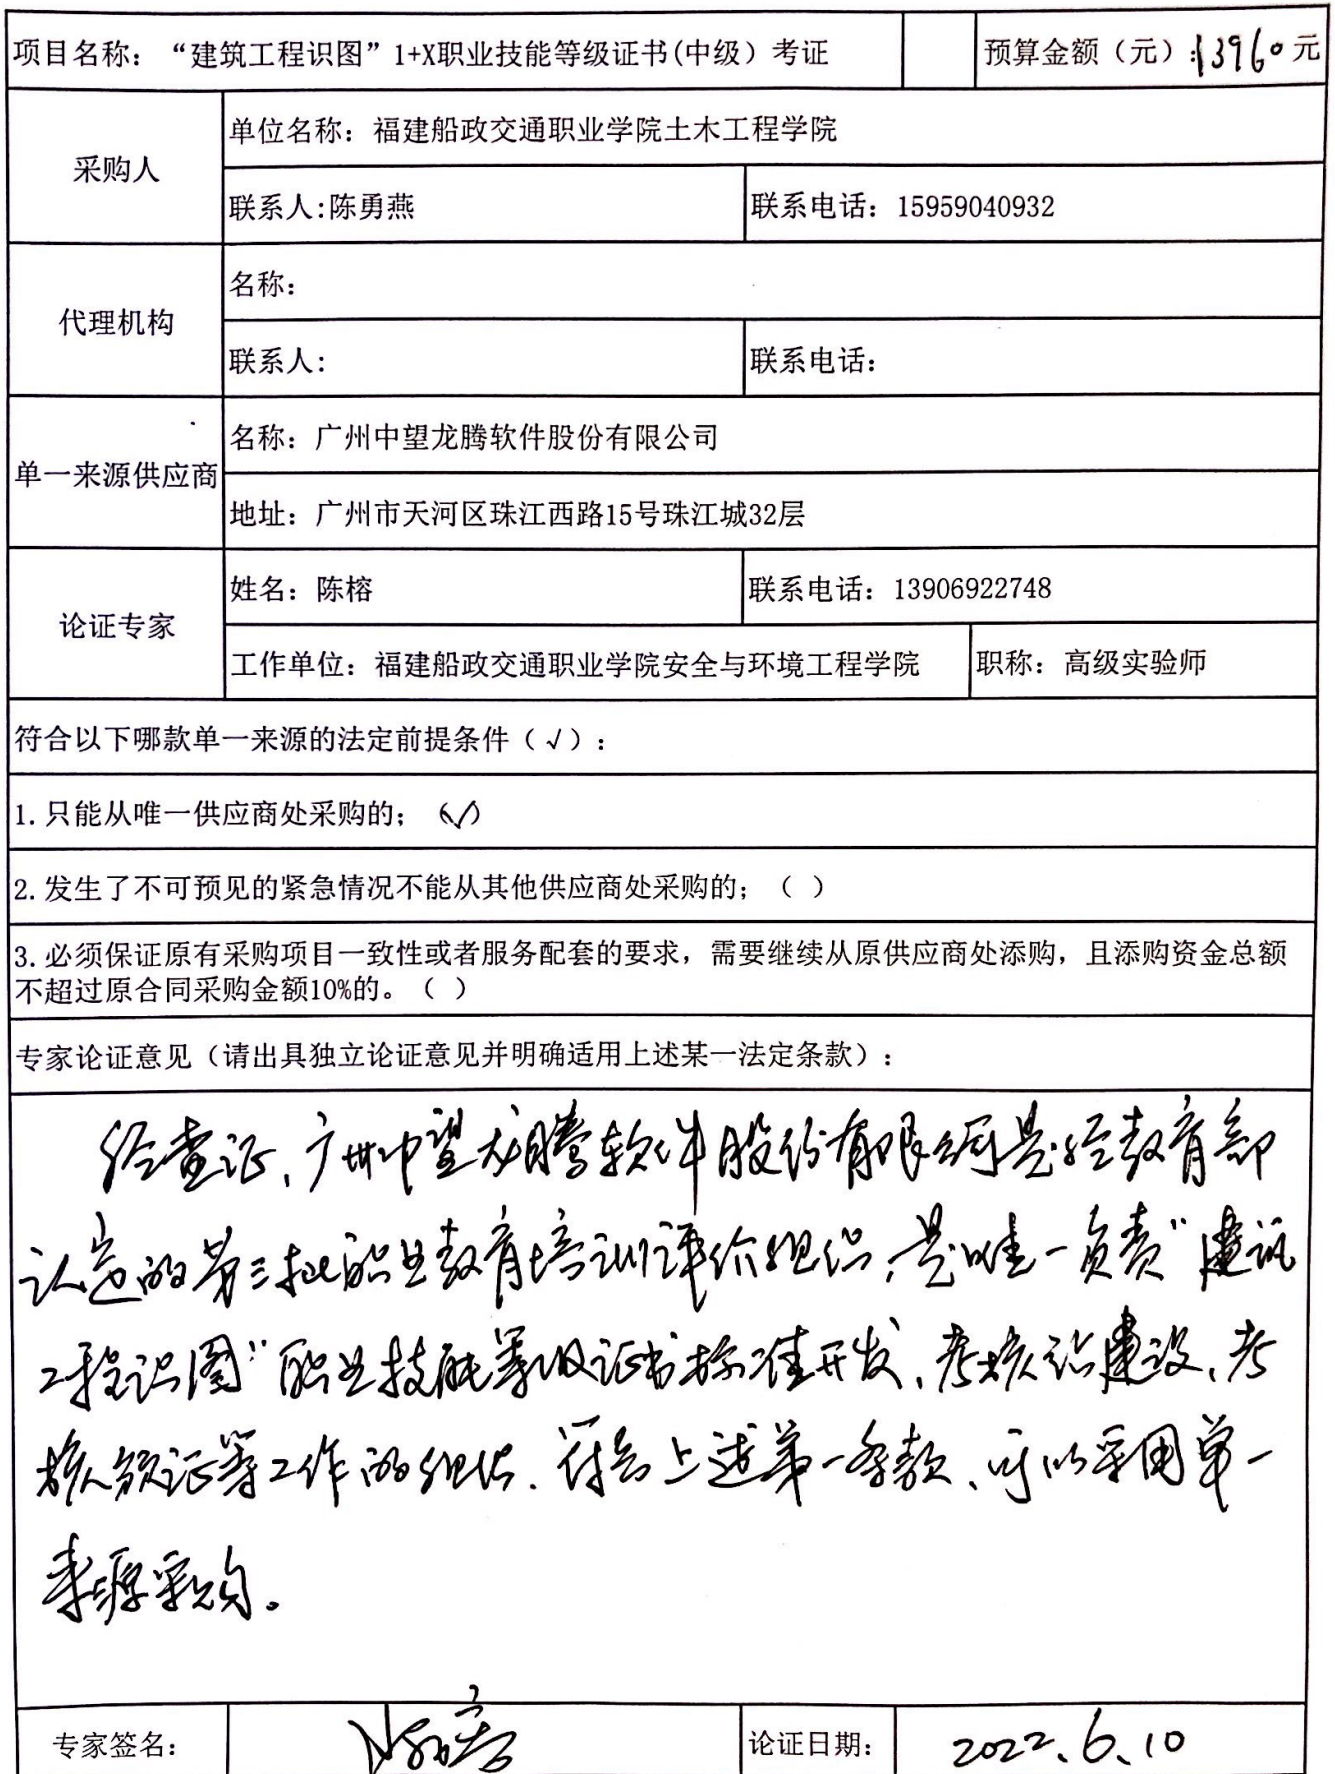 项目名称：“建筑工程识图”1+X职业技能等级证书(中级）考证 预算金额（元）:13960元
采购人
单位名称：福建船政交通职业学院土木工程学院
联系人:陈勇燕 联系电话：15959040932
代理机构
名称：
联系人: 联系电话：
单一来源供应商
名称：广州中望龙腾软件股份有限公司
地址：广州市天河区珠江西路15号珠江城32层
论证专家
姓名：陈榕 联系电话：13906922748
工作单位：福建船政交通职业学院安全与环境工程学院 职称：高级实验师
符合以下哪款单一来源的法定前提条件（√）：
1.只能从唯一供应商处采购的；（√）
2.发生了不可预见的紧急情况不能从其他供应商处采购的；（ ）
3.必须保证原有采购项目一致性或者服务配套的要求，需要继续从原供应商处添购，且添购资金总额
不超过原合同采购金额10%的。（ ）
专家论证意见（请出具独立论证意见并明确适用上述某一法定条款）：
经查证，广州中望龙腾软件股份有限公司是经教育部
认定的第三批职业教育培训评价组织，是唯一负责“建筑
工程识图”职业技能等级证书标准开发、考核站建设、考
核颁证等工作的组织．符合上述第一条款、可以采用单一
来源采购。
专家签名： 陈榕 论证日期： 2022.6.10